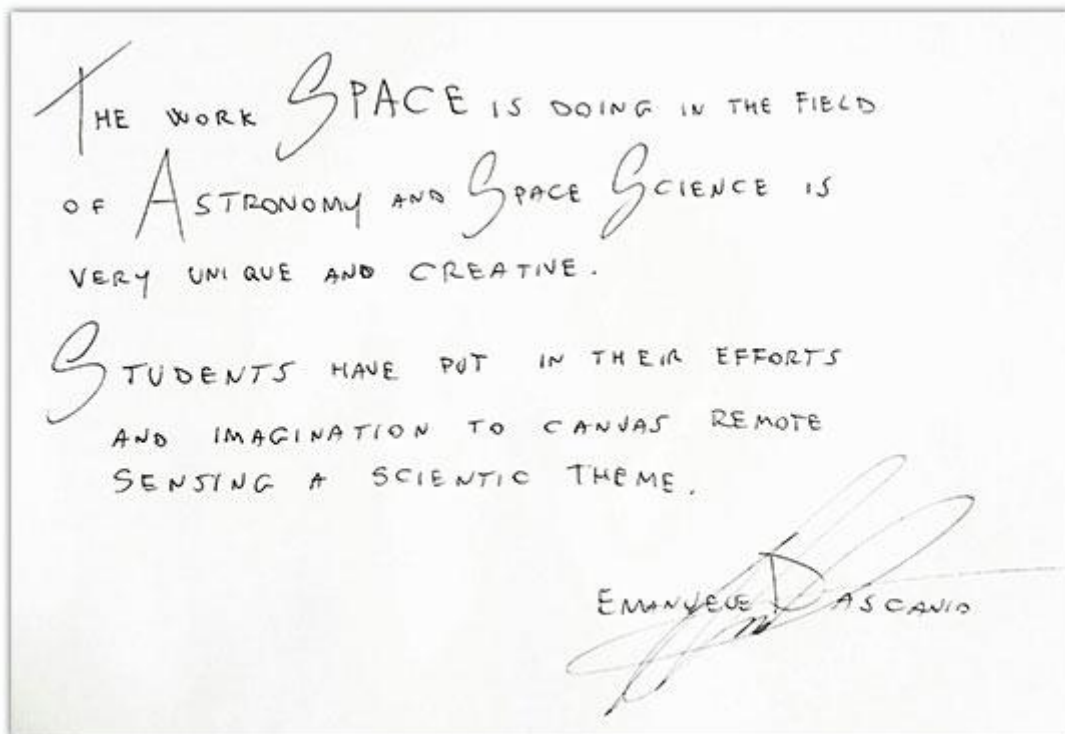 THE WORK SPACE IS DOING IN THE FIELD
OF ASTRONOMY AND SPACE SCIENCE IS
VERY UNIQUE AND CREATIVE.
STUDENTS HAVE PUT IN THEIR EFFORTS
AND IMAGINATION TO CANVAS REMOTE
SENSING A SCIENTIC THEME.
EMANUELE DASCANIO